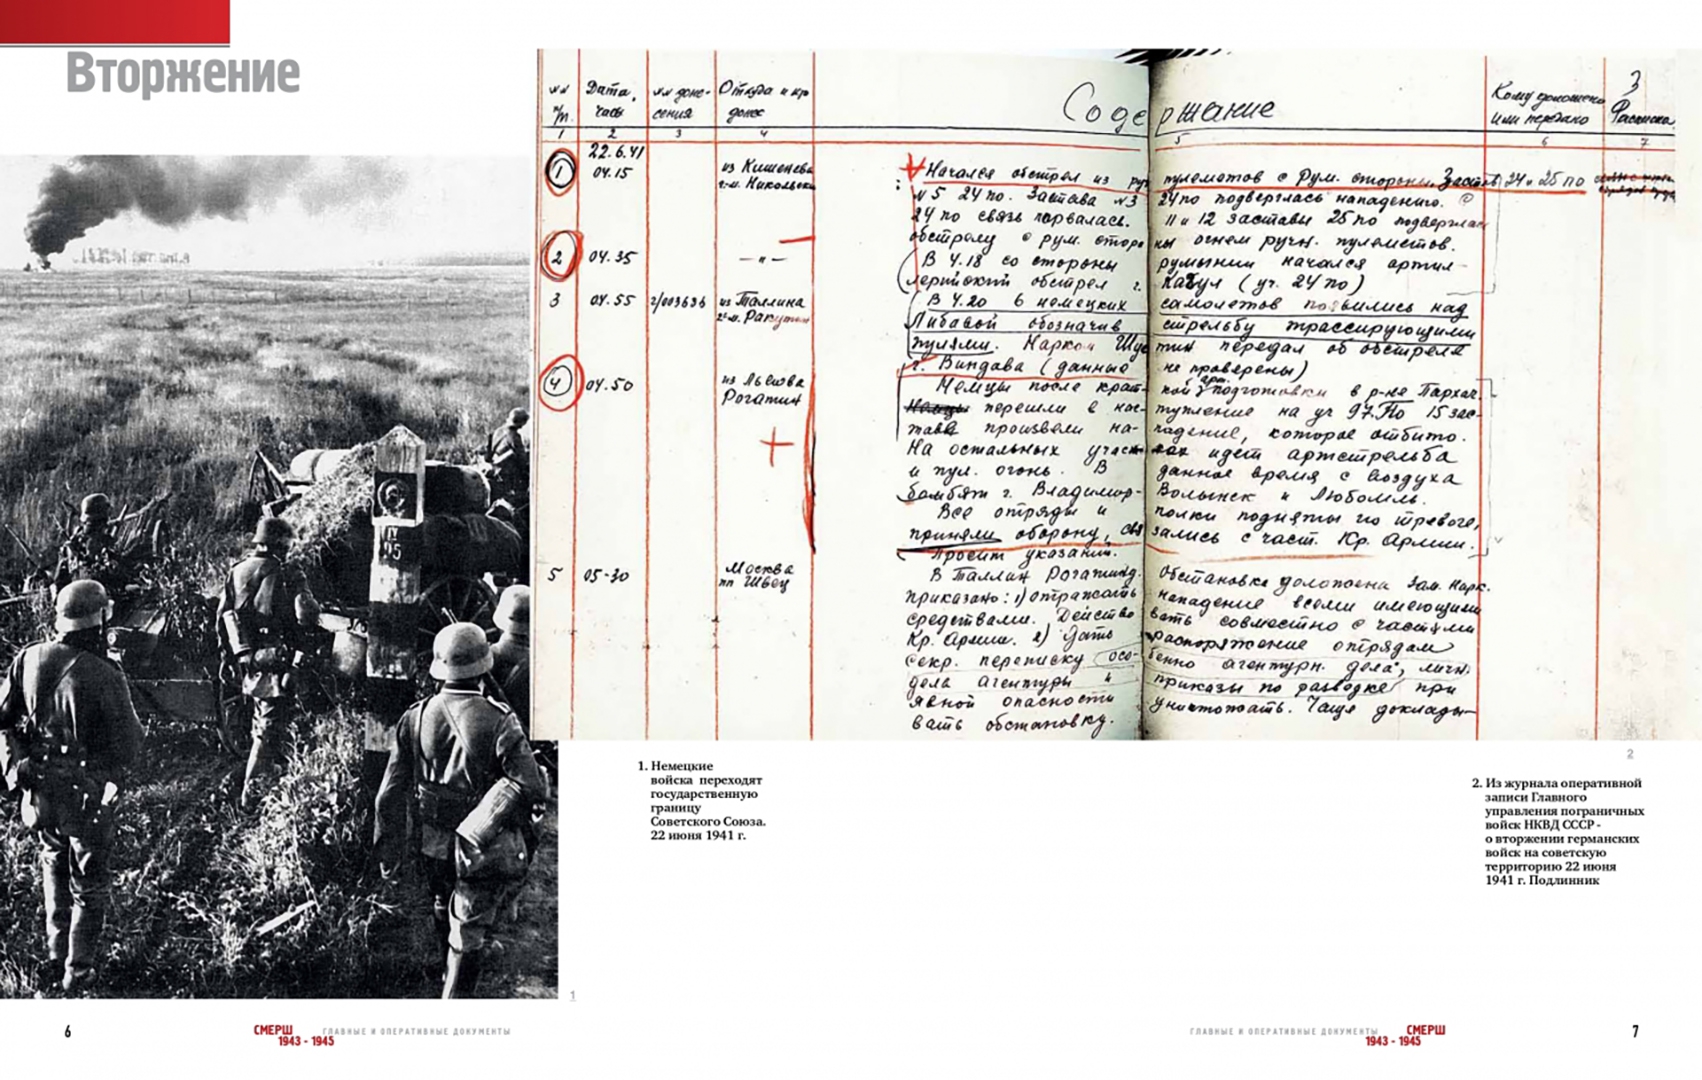 Вторжение
№№ п/п.
Дата, часы
№№ доне-
сения
Откуда и кр
донес
Содержание
Кому доложено
или передано
3
Расписка
1 2 3 4 5 6 7
1 22.6.41 04.15 из Кишенева г-м. Никольск
Начался обстрел из руч пулеметов с Рум. стороны. Застав 24 и 25 ПО
№5 24 по. Застава №3 24 по подверглась нападению.
24 по связь порвалась. 11 и 12 заставы 25 по подверглис
обстрелу с рум. сторо ны огнем ручн. пулеметов.
2 04.35 — " —
В 4.18 со стороны румынии начался артил-
лерийский обстрел г. Кагул (уч. 24 по)
3 04.55 г/003636 из Таллина г-м. Ракутин
В 4.20 6 немецких самолетов появились над
Либавой обозначив стрельбу трассирующими
пулями. Нарком Шус тин передал об обстреле
г. Виндава (данные не проверены)
4 04.50 из Львова Рогатин
Немцы после крат- кой арт. подготовки в р-не Пархач
перешли в нас- тупление на уч 97 ПО 15 зас-
тава произвели на- падение, которое отбито.
На остальных участ ках идет артстрельба
и пул. огонь. В данное время с воздуха
бомбят г. Владимир- Волынск и Любомль.
Все отряды и полки подняты по тревоге,
приняли оборону, свя зались с част. Кр. Армии.
Просит указаний.
5 05-30 Москва пп Швец
В Таллин Рогатину. Обстановка доложена Зам. Нарк.
приказано: 1) отражать нападение всеми имеющими
средствами. Действо вать совместно с частями
Кр. Армии. 2) Дать распоряжение отрядам
секр. переписку (осо- бенно агентурн. дела, личн.
дела агентуры и приказы по разведке) при
явной опасности уничтожать. Чаще доклады-
вать обстановку.
2
1. Немецкие
войска переходят
государственную
границу
Советского Союза.
22 июня 1941 г.
2. Из журнала оперативной
записи Главного
управления пограничных
войск НКВД СССР -
о вторжении германских
войск на советскую
территорию 22 июня
1941 г. Подлинник
1
6
СМЕРШ ГЛАВНЫЕ И ОПЕРАТИВНЫЕ ДОКУМЕНТЫ
1943 - 1945
ГЛАВНЫЕ И ОПЕРАТИВНЫЕ ДОКУМЕНТЫ СМЕРШ
1943 - 1945
7